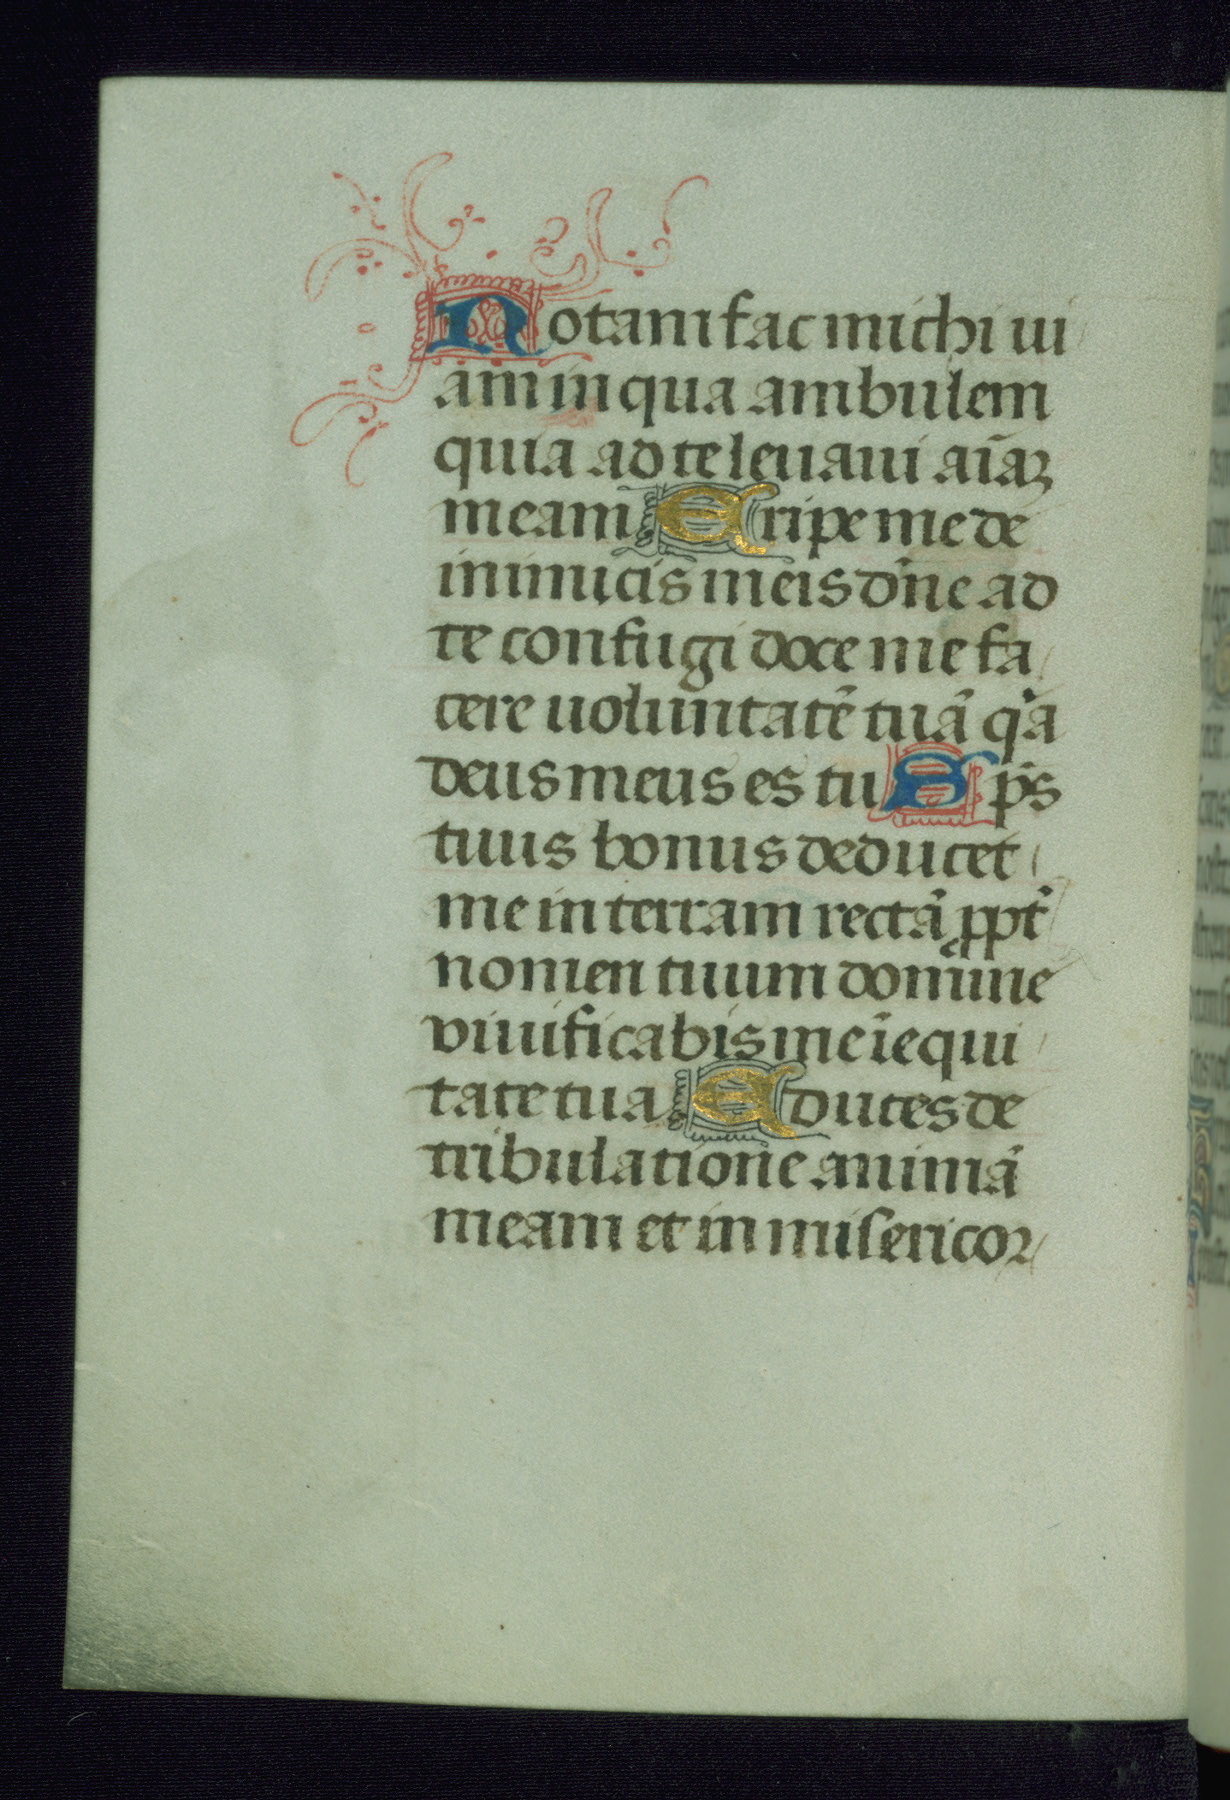 Notam fac michi ui
am in qua ambulem
quia ad te leuaui aīaꝫ
meam Eripe me de
inimicis meis dn̄e ad
te confugi doce me fa
cere uoluntatē tuā qͥa
deus meus es tu Sps̄
tuus bonus deducet
me in terram rectā ꝓpt̄
nomen tuum domine
viuificabis me ī equi
tate tua Educes de
tribulatione animā
meam et in misericor